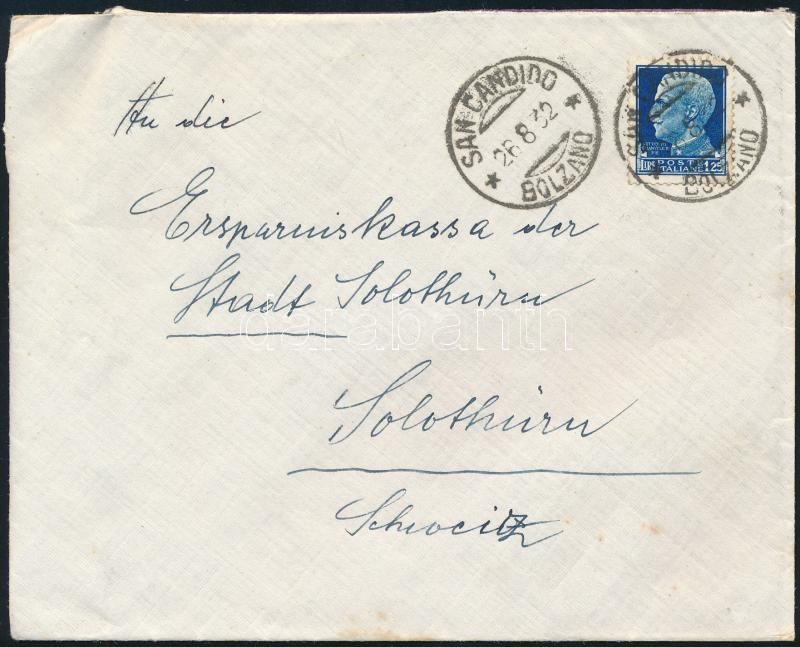 SAN CANDIDO
26.8.32
BOLZANO
POSTE
ITALIANE
LIRE 1,25
BOLZANO
An die
Ersparniskassa der
Stadt Solothurn
darabanth
Solothurn
Schweiz